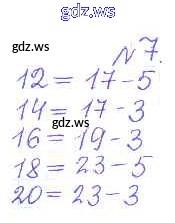 gdz.ws
N 7.
gdz.ws
12 = 17 - 5
14 = 17 - 3
gdz.ws
16 = 19 - 3
18 = 23 - 5
20 = 23 - 3
gdz.ws